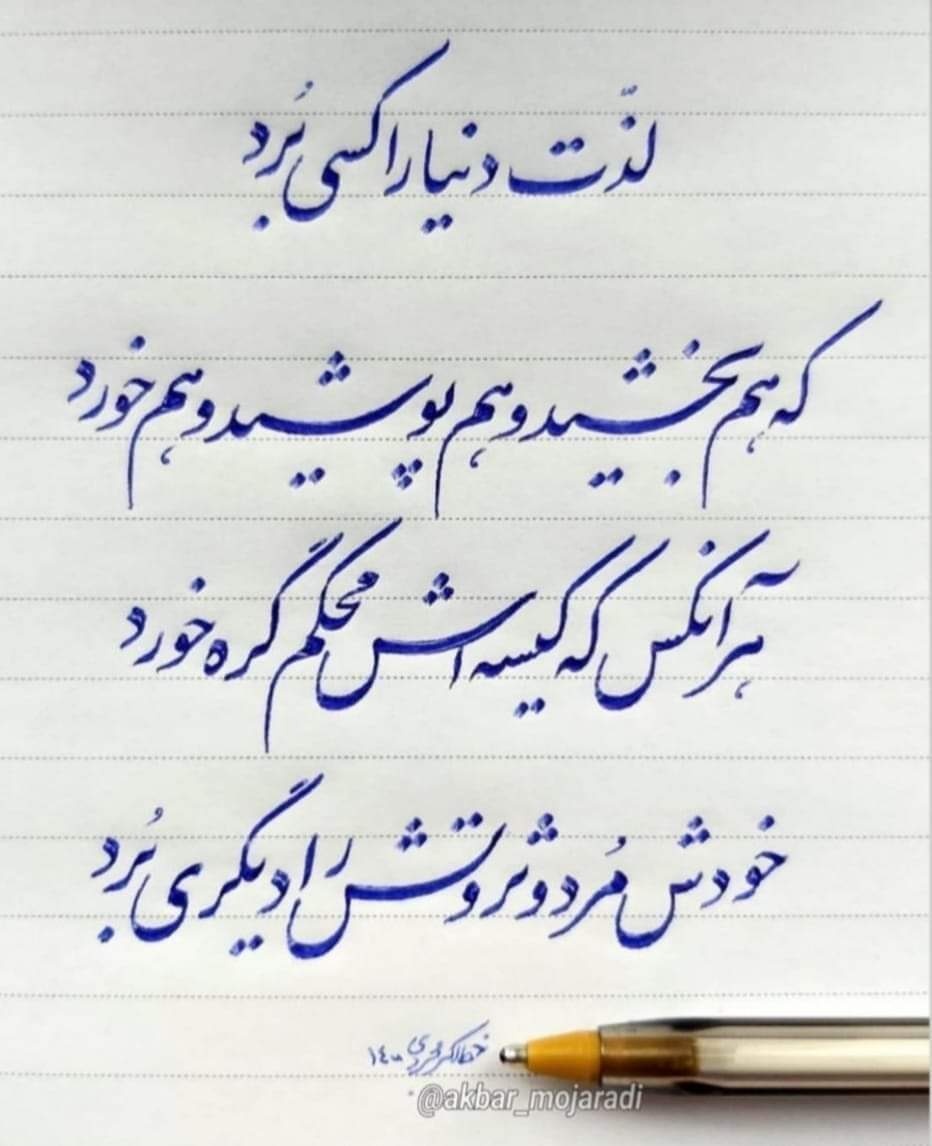 لذّت دنیا را کسی بُرد
که هم بخشید و هم پوشید و هم خورد
هر آنکس که کیسه اش محکم گره خورد
خودش مُرد و ثروتش را دیگری بُرد
خط اکبر مجردی ١٤٠٠
@akbar_mojaradi